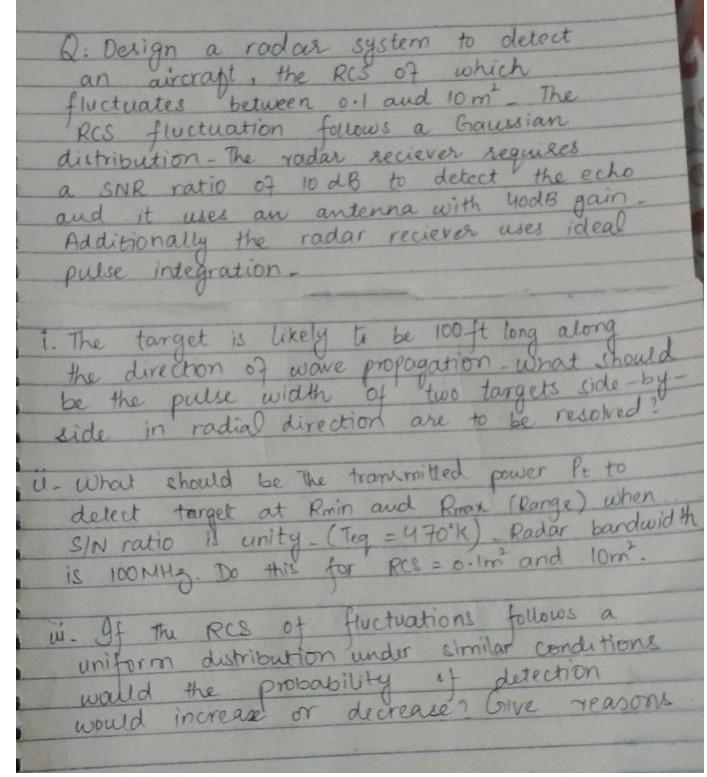 Q: Design a radar system to detect
an aircraft, the RCS of which
fluctuates between 0.1 and 10 m². The
RCS fluctuation follows a Gaussian
distribution - The radar reciever requires
a SNR ratio of 10 dB to detect the echo
and it uses an antenna with 40dB gain.
Additionally the radar reciever uses ideal
pulse integration -
i. The target is likely to be 100 ft long along
the direction of wave propagation - what should
be the pulse width of two targets side-by-
side in radial direction are to be resolved?
ii - What should be the transmitted power Pt to
detect target at Rmin and Rmax (Range) when
S/N ratio is unity - (Teq = 470°K) - Radar bandwidth
is 100MHz. Do this for RCS = 0.1m² and 10m².
iii - If the RCS of fluctuations follows a
uniform distribution under similar conditions
would the probability of detection
would increase or decrease? Give reasons